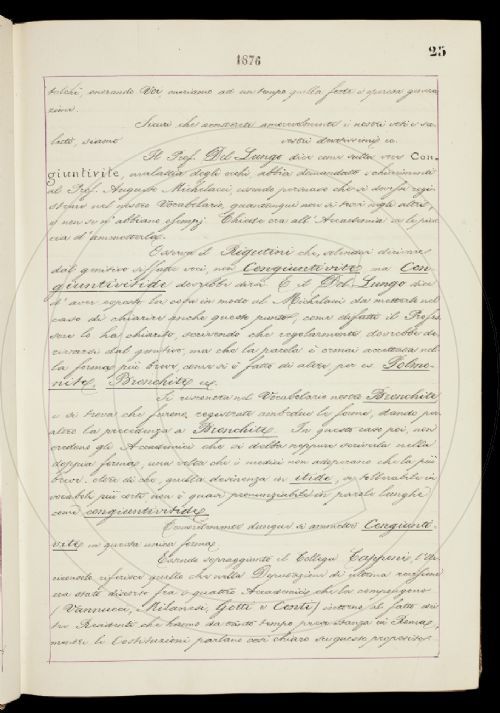 1876
25
tolchi, onorando Voi, onoriamo ad un tempo quella forte e operosa genera
zione.
Sicuri che accoglierete amorevolmente i nostri voti e sa
luti, siamo vostri devotissimi ec.
Il Prof. Del Lungo dice come sulla voce Con
giuntivite, malattia degli occhi, abbia domandato schiarimenti
al Prof. Augusto Michelacci, essendo persuaso che si dovesse regi
strare nel nostro Vocabolario, quantunque non si trovi negli altri,
e non se n'abbiano esempj. Chiede ora all'Accademia se le piac
cia d'ammetterla.
Osserva il Rigutini che, volendosi derivare
dal genitivo siffatte voci, non Congiuntivite ma Con
giuntivitide dovrebbe dirsi. E il Del Lungo dice
d'aver esposta la cosa in modo al Michelacci da metterlo nel
caso di chiarire anche questo punto, come difatti il Profes
sore lo ha chiarito, scrivendo che regolarmente dovrebbe de
rivarsi dal genitivo, ma che la parola è ormai accettata nel
la forma più breve, come si è fatto di altre per es. Polmo-
nite, Bronchite ec.
Si riscontra nel Vocabolario nostro Bronchite
e si trova che furono registrate ambedue le forme, dando per
altro la precedenza a Bronchite. In questo caso poi, non
credono gli Accademici che si debba neppure scriverla nella
doppia forma, una volta che i medici non adoperano che la più
breve. Oltre di che, quella desinenza in itide, se tollerabile in
vocaboli più corti non è quasi pronunziabile in parole lunghe
come congiuntivitide.
Concordemente dunque si ammette Congiunti-
vite in questa unica forma.
Essendo sopraggiunto il Collega Capponi, l'Ar
ciconsolo, riferisce quello che nella Deputazione di ultima revisione
era stato discorso fra i quattro Accademici che la compongono
(Vannucci, Milanesi, Gotti e Conti) intorno al fatto dei
tre Residenti che hanno da tanto tempo presa stanza in Roma,
mentre le Costituzioni parlano così chiaro su questo proposito.